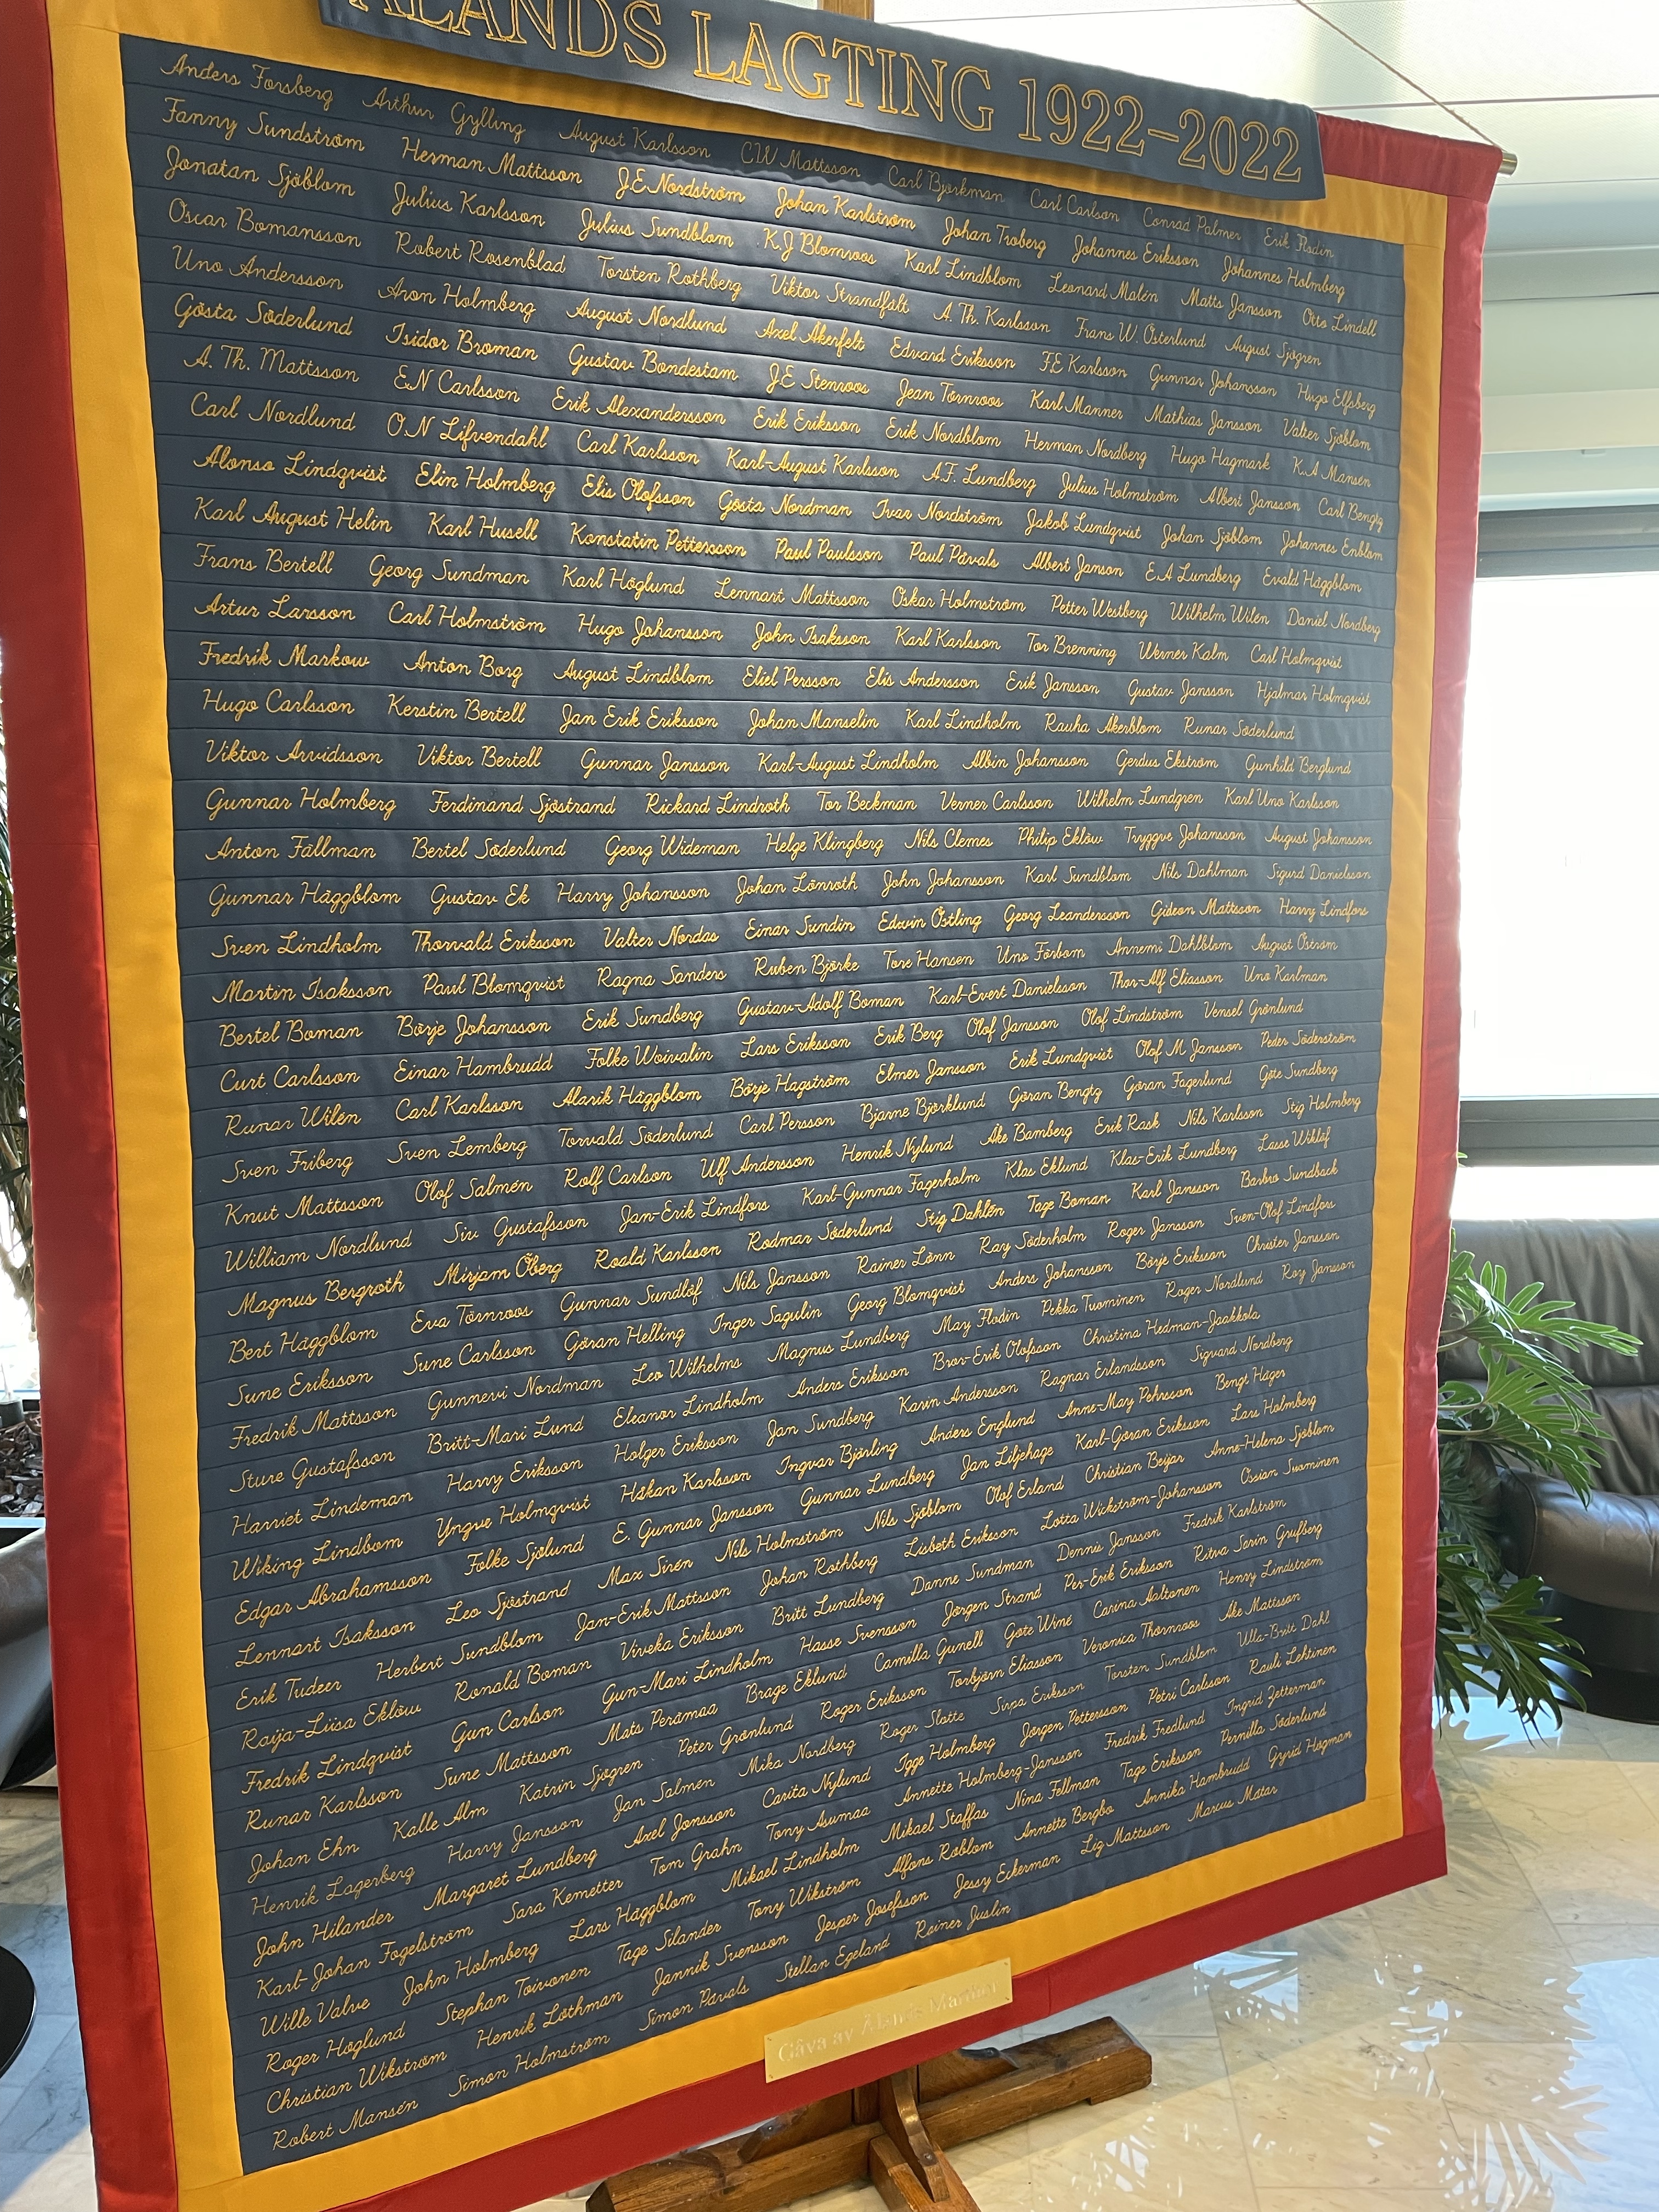 ÅLANDS LAGTING 1922-2022
Anders Forsberg Arthur Gylling August Karlsson CW Mattsson Carl Björkman Carl Carlson Conrad Palmer Erik Flodin
Fanny Sundström Herman Mattsson J.E Nordström Johan Karlström Johan Troberg Johannes Eriksson Johannes Holmberg
Jonatan Sjöblom Julius Karlsson Julius Sundblom K.J Blomroos Karl Lindblom Leonard Malén Matts Jansson Otto Lindell
Oscar Bomansson Robert Rosenblad Torsten Rothberg Viktor Strandfält A. Th. Karlsson Frans W. Österlund August Sjögren
Uno Andersson Aron Holmberg August Nordlund Axel Åkerfelt Edvard Eriksson F.E Karlsson Gunnar Johansson Hugo Elfsberg
Gösta Söderlund Isidor Broman Gustav Bondestam J.E Stenroos Jean Törnroos Karl Manner Mathias Jansson Valter Sjöblom
A. Th. Mattsson E.N Carlsson Erik Alexandersson Erik Eriksson Erik Nordblom Herman Nordberg Hugo Hagmark K.A Mansen
Carl Nordlund O.N Lifvendahl Carl Karlsson Karl-August Karlsson A.F. Lundberg Julius Holmström Albert Jansson Carl Bengtz
Alonso Lindqvist Elin Holmberg Elis Olofsson Gösta Nordman Ivar Nordström Jakob Lundqvist Johan Sjöblom Johannes Enblom
Karl August Helin Karl Husell Konstatin Pettersson Paul Paulsson Paul Påvals Albert Janson E.A Lundberg Evald Häggblom
Frans Bertell Georg Sundman Karl Höglund Lennart Mattsson Oskar Holmström Petter Westberg Wilhelm Wilén Daniel Nordberg
Artur Larsson Carl Holmström Hugo Johansson John Isaksson Karl Karlsson Tor Brenning Werner Kalm Carl Holmqvist
Fredrik Markow Anton Borg August Lindblom Eliel Persson Elis Andersson Erik Jansson Gustav Jansson Hjalmar Holmqvist
Hugo Carlsson Kerstin Bertell Jan Erik Eriksson Johan Manselin Karl Lindholm Rauha Åkerblom Runar Söderlund
Viktor Arvidsson Viktor Bertell Gunnar Jansson Karl-August Lindholm Albin Johansson Gerdus Ekström Gunhild Berglund
Gunnar Holmberg Ferdinand Sjöstrand Rickard Lindroth Tor Beckman Verner Carlsson Wilhelm Lundgren Karl Uno Karlsson
Anton Fällman Bertel Söderlund Georg Wideman Helge Klingberg Nils Clemes Philip Eklöw Tryggve Johansson August Johansson
Gunnar Häggblom Gustav Ek Harry Johansson Johan Lönroth John Johansson Karl Sundblom Nils Dahlman Sigurd Danielsson
Sven Lindholm Thorvald Eriksson Valter Nordas Einar Sundin Edwin Östling Georg Leandersson Gideon Mattsson Harry Lindfors
Martin Isaksson Paul Blomqvist Ragna Sanders Ruben Björke Tore Hansen Uno Förbom Annemi Dahlblom August Öström
Bertel Boman Börje Johansson Erik Sundberg Gustav-Adolf Boman Karl-Evert Danielsson Thor-Alf Eliasson Uno Karlman
Curt Carlsson Einar Hambrudd Folke Woivalin Lars Eriksson Erik Berg Olof Jansson Olof Lindström Vensel Grönlund
Runar Wilén Carl Karlsson Alarik Häggblom Börje Hagström Elmer Jansson Erik Lundqvist Olof M Jansson Peder Söderström
Sven Friberg Sven Lemberg Torvald Söderlund Carl Persson Bjarne Björklund Göran Bengtz Göran Fagerlund Göte Sundberg
Knut Mattsson Olof Salmén Rolf Carlson Ulf Andersson Henrik Nylund Åke Bamberg Erik Rask Nils Karlsson Stig Holmberg
William Nordlund Siv Gustafsson Jan-Erik Lindfors Karl-Gunnar Fagerholm Klas Eklund Klas-Erik Lundberg Lasse Wiklöf
Magnus Bergroth Mirjam Öberg Roald Karlsson Rodmar Söderlund Stig Dahlén Tage Boman Karl Jansson Barbro Sundback
Bert Häggblom Eva Törnroos Gunnar Sundlöf Nils Jansson Rainer Lönn Ray Söderholm Roger Jansson Sven-Olof Lindfors
Sune Eriksson Sune Carlsson Göran Helling Inger Sagulin Georg Blomqvist Anders Johansson Börje Eriksson Christer Jansson
Fredrik Mattsson Gunnevi Nordman Leo Wilhelms Magnus Lundberg May Flodin Pekka Tuominen Roger Nordlund Roy Jansson
Sture Gustafsson Britt-Mari Lund Eleanor Lindholm Anders Eriksson Bror-Erik Olofsson Christina Hedman-Jaakkola
Harriet Lindeman Harry Eriksson Holger Eriksson Jan Sundberg Karin Andersson Ragnar Erlandsson Sigvard Nordberg
Wiking Lindbom Yngve Holmqvist Håkan Karlsson Ingvar Björling Anders Englund Anne-May Pehrsson Bengt Häger
Edgar Abrahamsson Folke Sjölund E. Gunnar Jansson Gunnar Lundberg Jan Liljehage Karl-Göran Eriksson Lars Holmberg
Lennart Isaksson Leo Sjöstrand Max Sirén Nils Holmström Nils Sjöblom Olof Erland Christian Beijar Anne-Helena Sjöblom
Erik Tudeer Herbert Sundblom Jan-Erik Mattsson Johan Rothberg Lisbeth Eriksson Lotta Wickström-Johansson Ossian Suominen
Raija-Liisa Eklöw Ronald Boman Viveka Eriksson Britt Lundberg Danne Sundman Dennis Jansson Fredrik Karlström
Fredrik Lindqvist Gun Carlson Gun-Mari Lindholm Hasse Svensson Jörgen Strand Per-Erik Eriksson Ritva Sarin Grufberg
Runar Karlsson Sune Mattsson Mats Perämaa Brage Eklund Camilla Gunell Göte Winé Carina Aaltonen Henry Lindström
Johan Ehn Kalle Alm Katrin Sjögren Peter Grönlund Roger Eriksson Torbjörn Eliasson Veronica Thörnroos Åke Mattsson
Henrik Lagerberg Harry Jansson Jan Salmén Mika Nordberg Roger Slotte Sirpa Eriksson Torsten Sundblom Ulla-Britt Dahl
John Hilander Margaret Lundberg Axel Jonsson Carita Nylund Igge Holmberg Jörgen Pettersson Petri Carlsson Rauli Lehtinen
Karl-Johan Fogelström Sara Kemetter Tom Grahn Tony Asumaa Annette Holmberg-Jansson Fredrik Fredlund Ingrid Zetterman
Wille Valve John Holmberg Lars Häggblom Mikael Lindholm Mikael Staffas Nina Fellman Tage Eriksson Pernilla Söderlund
Roger Höglund Stephan Toivonen Tage Silander Tony Wikström Alfons Röblom Annette Bergbo Annika Hambrudd Gyrid Högman
Christian Wikström Henrik Löthman Jannik Svensson Jesper Josefsson Jessy Eckerman Liz Mattsson Marcus Måtar
Robert Mansén Simon Holmström Simon Påvals Stellan Egeland Rainer Juslin
Gåva av Ålands Marthor